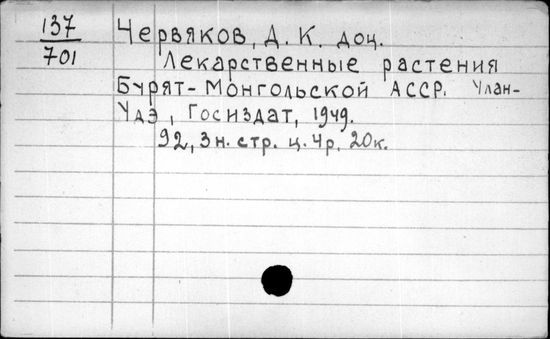 137
701
Червяков, Д. К. доц.
Лекарственные растения
Бурят-Монгольской АССР. Улан-
Удэ, Госиздат, 1949.
92, 3 н. стр. ц. 4р. 20к.